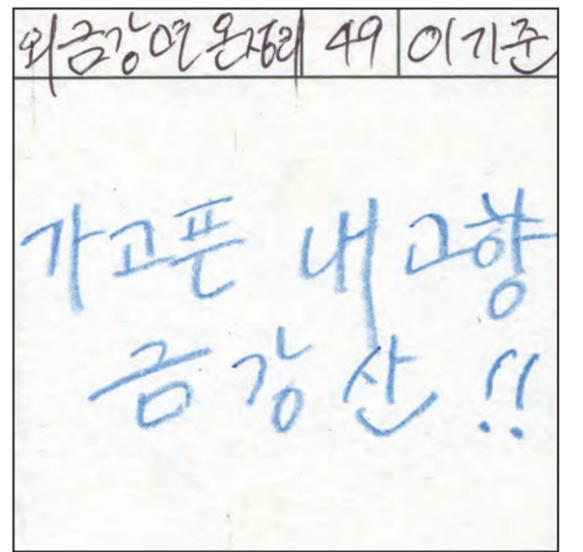 외금강면 온정리 49 이기준
가고픈 내 고향
금강산!!